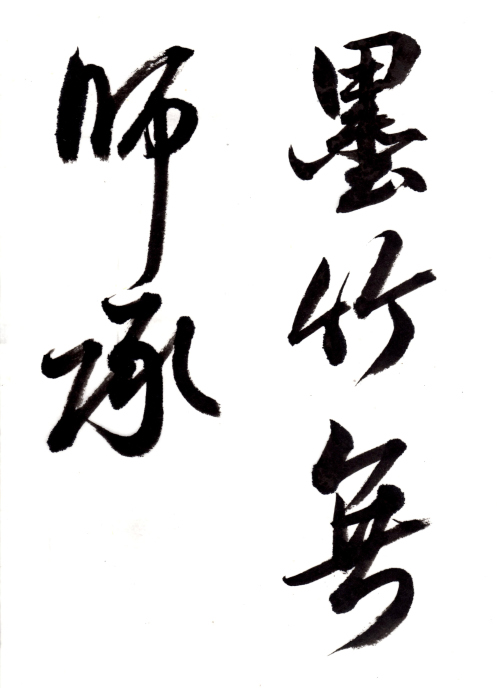 墨竹無
师承